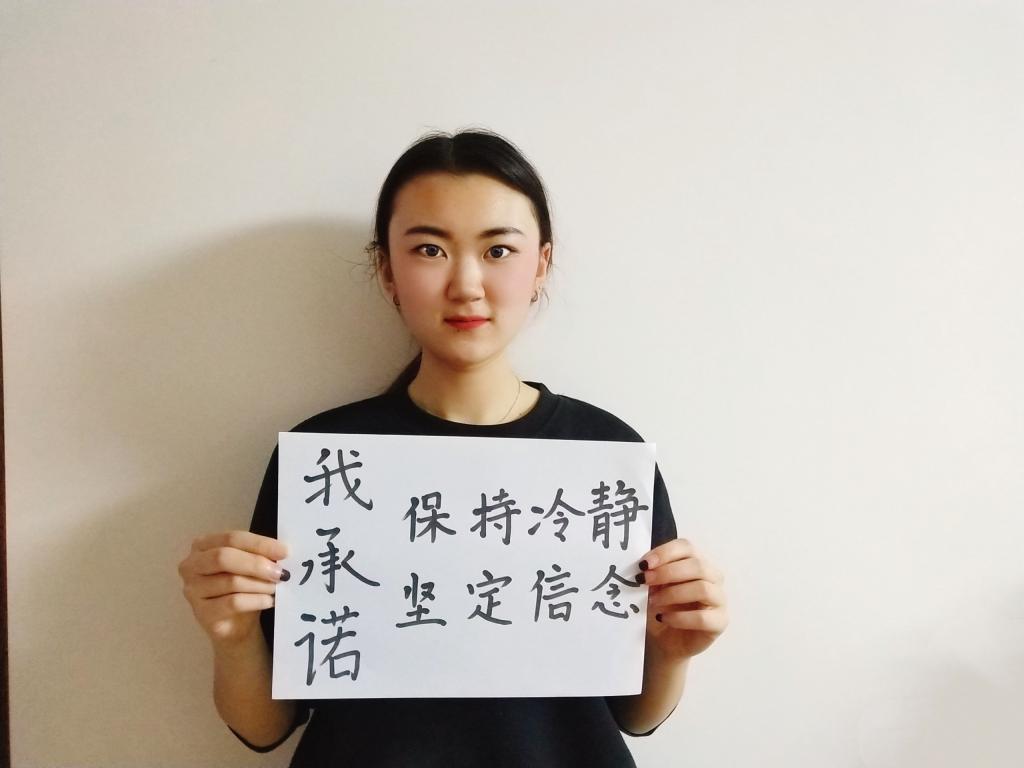 我承诺
保持冷静
坚定信念